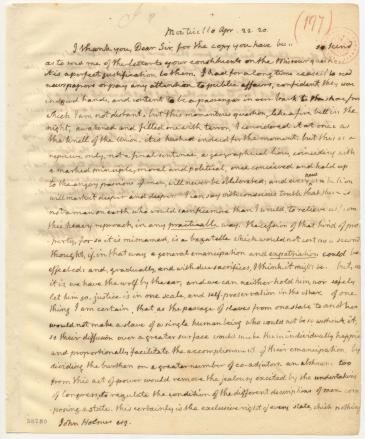 (177)
Monticello Apr. 22. 20.
I thank you, Dear Sir, for the copy you have be so kind
as to send me of the letter to your constituents on the Missouri question.
it is a perfect justification to them. I had for a long time ceased to read
newspapers or pay any attention to public affairs, confident they were
in good hands, and content to be a passenger in our bark to the shore from
which I am not distant. but this momentous question, like a fire bell in the
night, awakened and filled me with terror. I considered it at once as
the knell of the Union. it is hushed indeed for the moment. but this is a
reprieve only, not a final sentence. a geographical line, coinciding with
a marked principle, moral and political, once conceived and held up
to the angry passions of men, will never be obliterated; and every new irritation
will mark it deeper and deeper. I can say with conscious truth that there is
not a man on earth who would sacrifice more than I would, to relieve us from
this heavy reproach, in any practicable way. the cession of that kind of pro-
perty, for so it is misnamed, is a bagatelle which would not cost me a second
thought, if, in that way, a general emancipation and expatriation could be
effected: and, gradually, and with due sacrifices, I think it might be. but, as
it is, we have the wolf by the ear, and we can neither hold him, nor safely
let him go. justice is in one scale, and self-preservation in the other. of one
thing I am certain, that as the passage of slaves from one state to another
would not make a slave of a single human being who would not be so without it,
so their diffusion over a greater surface would make them individually happier
and proportionally facilitate the accomplishment of their emancipation, by
dividing the burthen on a greater number of co-adjutors. an abstinence too
from this act of power would remove the jealousy excited by the undertaking
of Congress, to regulate the condition of the different descriptions of men com-
posing a state. this certainly is the exclusive right of every state, which nothing
John Holmes esq.
38780